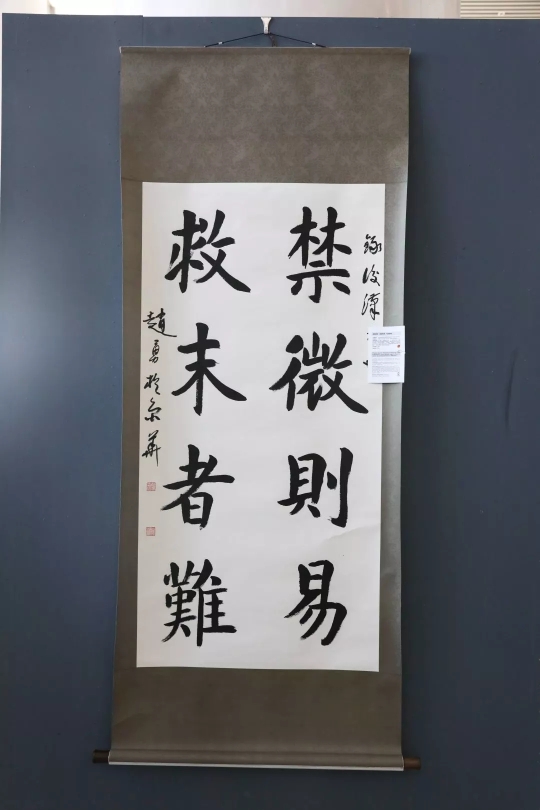 錄後漢
禁微則易
救末者難
趙勇於京華